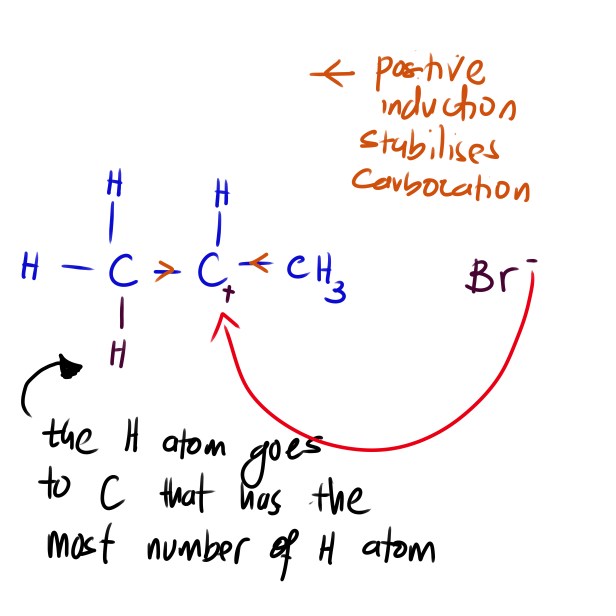 ← positive
induction
stabilises
Carbocation
H H
H — C → C ← CH3 Br⁻
+
H
the H atom goes
to C that has the
most number of H atom